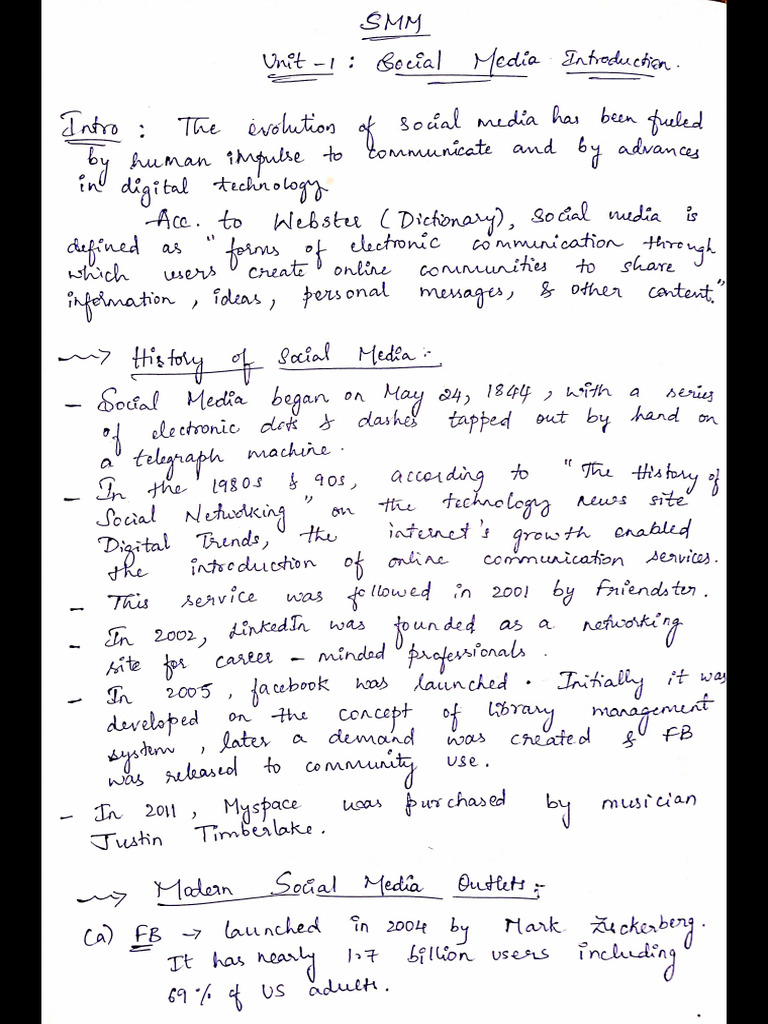 SMM
Unit-1 : Social Media Introduction.
Intro : The evolution of social media has been fueled
by human impulse to communicate and by advances
in digital technology
Acc. to Webster (Dictionary), social media is
defined as "forms of electronic communication through
which users create online communities to share
information, ideas, personal messages, & other content."
~~> History of Social Media:-
- Social Media began on May 24, 1844, with a series
of electronic dots & dashes tapped out by hand on
a telegraph machine.
- In the 1980s & 90s, according to "The History of
Social Networking" on the technology news site
Digital Trends, the internet's growth enabled
the introduction of online communication services.
- This service was followed in 2001 by Friendster.
- In 2002, LinkedIn was founded as a networking
site for career-minded professionals.
- In 2005, facebook was launched. Initially it was
developed on the concept of library management
system, later a demand was created & FB
was released to community use.
- In 2011, Myspace was purchased by musician
Justin Timberlake.
~~> Modern Social Media Outlets:-
(a) FB → launched in 2004 by Mark Zuckerberg.
It has nearly 1.7 billion users including
69% of US adults.